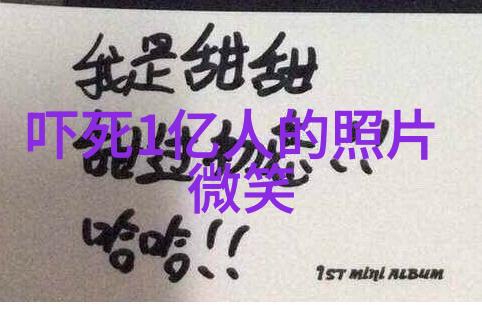 我是甜甜
吓死1亿人的照片
甜过初恋!!
微笑
哈哈!!
1ST MINI ALBUM